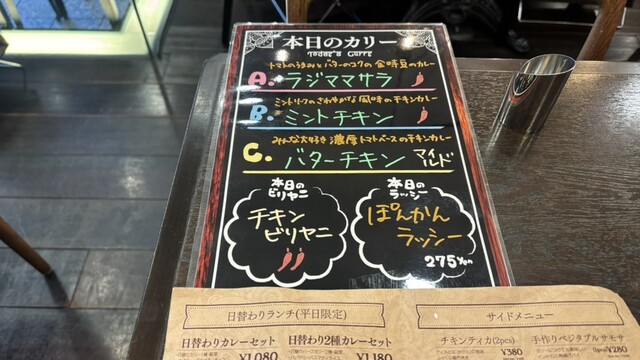 本日のカリー
Today's Curry
トマトのうまみとバターのコクの金時豆のカレー
A. ラジママサラ
ミントリーフのさわやかな風味のチキンカレー
B. ミントチキン
みんな大好き濃厚トマトベースのチキンカレー
C. バターチキン マイルド
本日の
ビリヤニ
チキン
ビリヤニ
本日の
ラッシー
ぽんかん
ラッシー
275yen
日替わりランチ(平日限定)
日替わりカレーセット
¥1,080
日替わり2種カレーセット
¥1,180
サイドメニュー
チキンティカ(2pcs)
¥380
手作りベジタブルサモサ
¥280